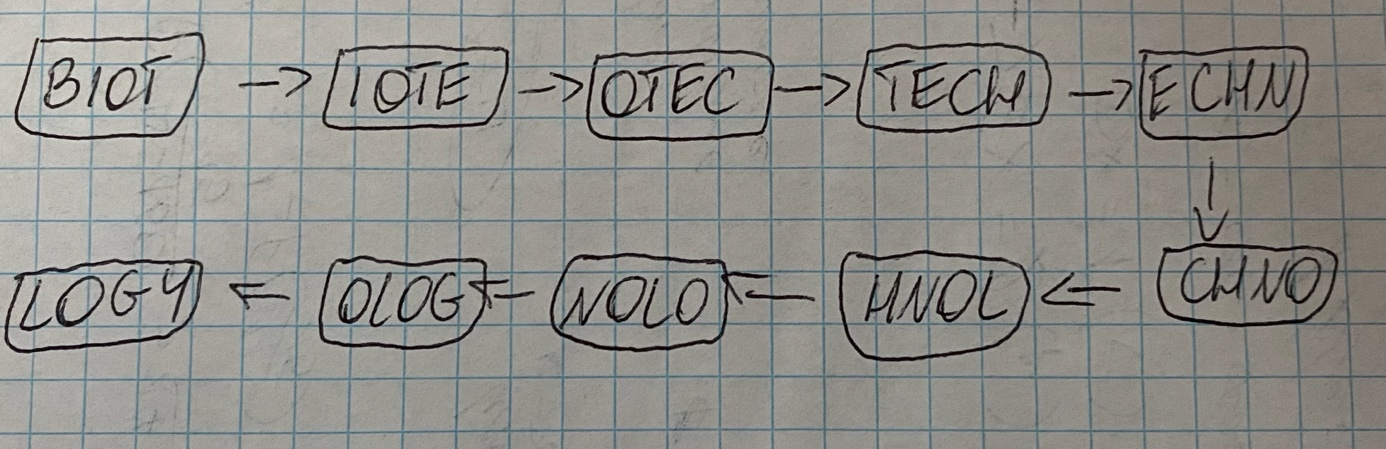 BIOT -> IOTE -> OTEC -> TECH -> ECHN
↓
LOGY <- OLOG <- NOLO <- HNOL <- CHNO